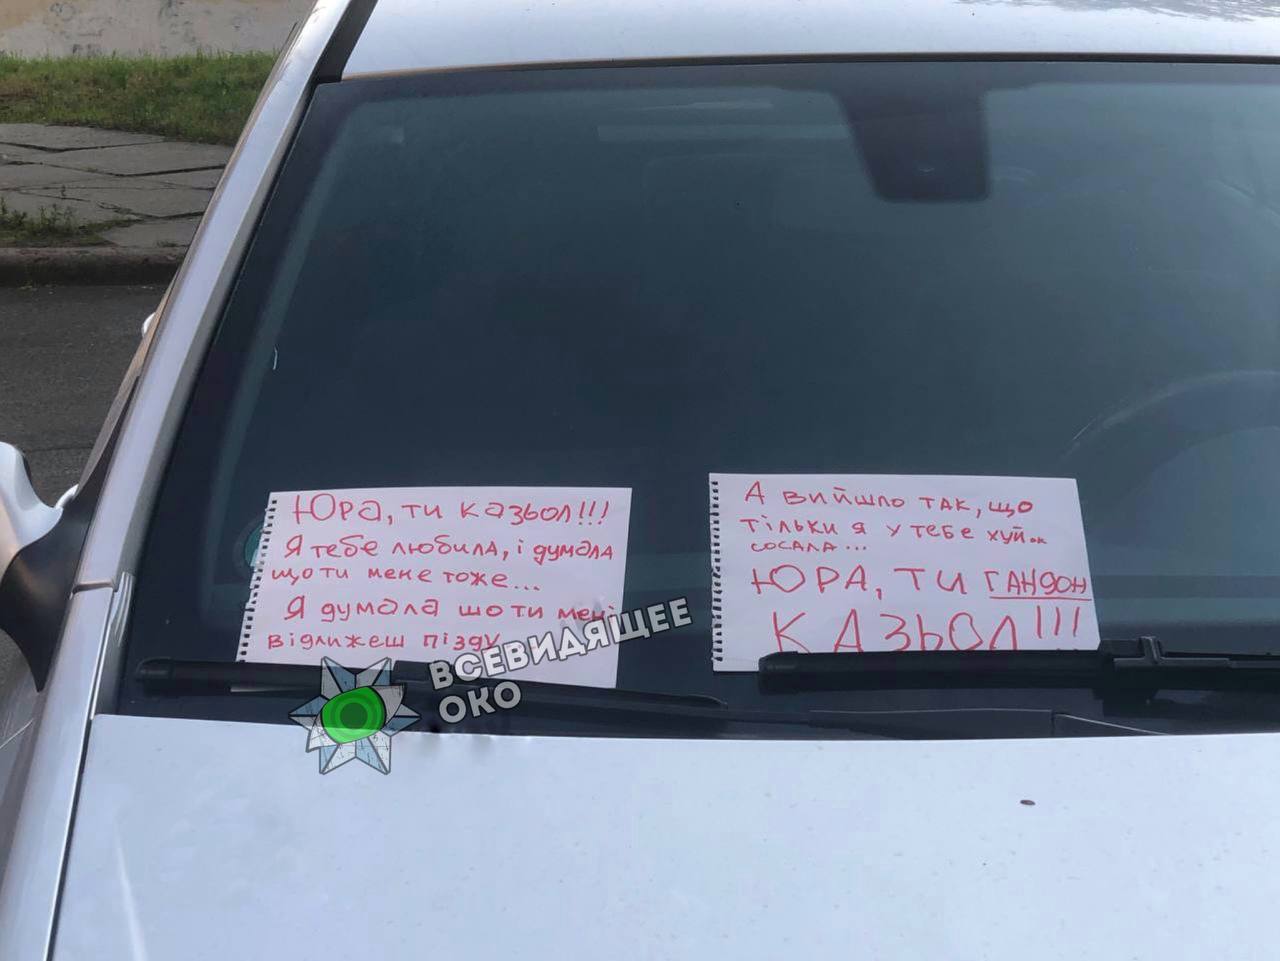 Юра, ти казьол!!!
Я тебе любила, і думала
що ти мене тоже...
Я думала шо ти мені
відлижеш пізду
А вийшло так, що
тільки я у тебе хуйок
сосала...
Юра, ти гандон
КАЗЬОЛ!!!
ВСЕВИДЯЩЕЕ
ОКО